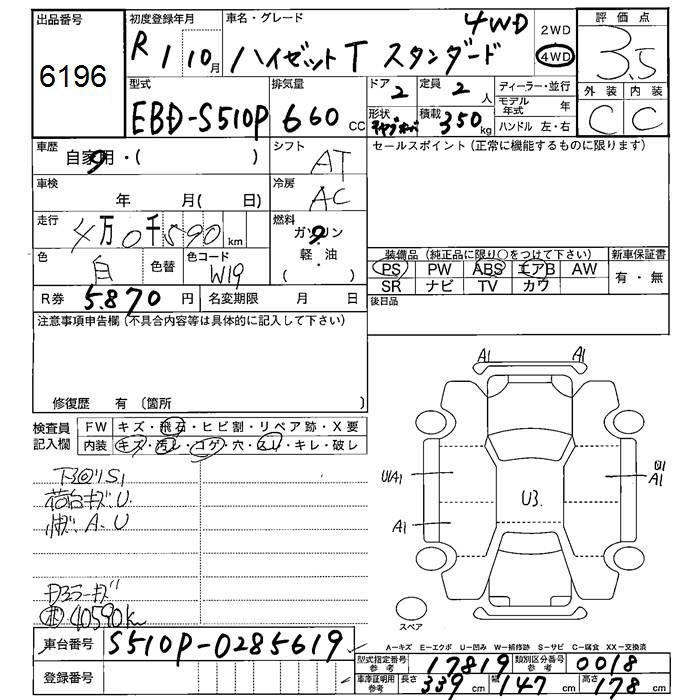 出品番号
6196
初度登録年月
R 1 10月
車名・グレード
ハイゼットT スタンダード 4WD
2WD
4WD
評価点
3.5
外装 内装
C C
型式
EBD-S510P
排気量
660 cc
ドア
2
定員
2人
形状
積載
350kg
ディーラー・並行
モデル年式 年
ハンドル 左・右
車歴
自家用・( )
シフト
AT
セールスポイント (正常に機能するものに限ります)
車検
年 月( 日)
冷房
AC
走行
4万0千590km
燃料
ガソリン
軽・油
( )
色
白
色替
色コード
W19
装備品 (純正品に限り○をつけて下さい)
PS PW ABS エアB AW
SR ナビ TV カワ
新車保証書
有・無
R券 5.870円
名変期限 月 日
後日品
注意事項申告欄 (不具合内容等は具体的に記入して下さい)
修復歴 有 (箇所 )
検査員記入欄
FW キズ・飛石・ヒビ割・リペア跡・X要
内装 キズ・汚レ・コゲ・穴・スレ・キレ・破レ
下回りS1
荷台キズ.U
A.U
40590km
A1
A1
U1A1
A1
U3.
U1
A1
スペア
A-キズ E-エクボ U-凹み W-補修跡 S-サビ C-腐食 XX-交換済
車台番号
S510P-0285619
登録番号
型式指定番号 参考
17819
類別区分番号 参考
0018
車庫証明用 参考
長さ 339cm
幅 147cm
高さ 178cm